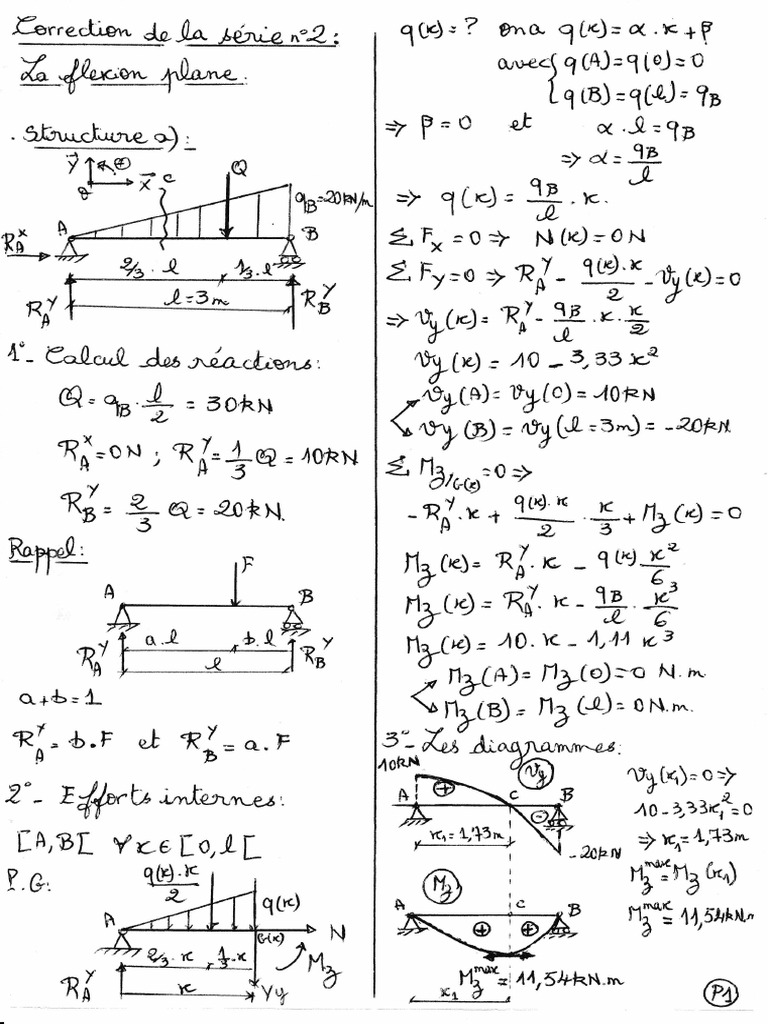 Correction de la série n°2 :
La flexion plane.
. Structure a) :
Y
⊕
X
C
Q
q_B = 20 kN/m
R_A^X
A
B
2/3 . l
1/3 . l
R_A^Y
l = 3m
R_B^Y
1°- Calcul des réactions :
Q = q_B . l/2 = 30 kN
R_A^X = 0 N ; R_A^Y = 1/3 Q = 10 kN
R_B^Y = 2/3 Q = 20 kN.
Rappel :
F
A
B
R_A^Y
a.l
b.l
R_B^Y
l
a + b = 1
R_A^Y = b.F et R_B^Y = a.F
2°- Efforts internes :
[A,B[ ∀x ∈ [0,l[
P.G:
q(x).x/2
q(x)
A
G(x)
N
2/3 . x
1/3 . x
M_z
R_A^Y
x
Vy
q(x) = ? on a q(x) = α . x + β
avec { q(A) = q(0) = 0
q(B) = q(l) = q_B
=> β = 0 et α . l = q_B
=> α = q_B/l
=> q(x) = q_B/l . x.
Σ F_x = 0 => N(x) = 0 N
Σ F_Y = 0 => R_A^Y - q(x).x/2 - Vy(x) = 0
=> Vy(x) = R_A^Y - q_B/l . x . x/2
Vy(x) = 10 - 3,33 x²
Vy(A) = Vy(0) = 10 kN
Vy(B) = Vy(l = 3m) = -20 kN.
Σ M_z/G(x) = 0 =>
- R_A^Y . x + q(x).x/2 . x/3 + M_z(x) = 0
M_z(x) = R_A^Y . x - q(x) . x²/6
M_z(x) = R_A^Y . x - q_B/l . x³/6
M_z(x) = 10 . x - 1,11 x³
M_z(A) = M_z(0) = 0 N.m
M_z(B) = M_z(l) = 0 N.m.
3°- Les diagrammes :
10 kN
Vy
A
⊕
C
B
⊖
x1 = 1,73m
-20 kN
Vy(x1) = 0 =>
10 - 3,33 x1² = 0
=> x1 = 1,73m
M_z^max = M_z(x1)
M_z^max = 11,54 kN.m
M_z
A
C
B
⊕
⊕
M_z^max = 11,54 kN.m
x1
P1